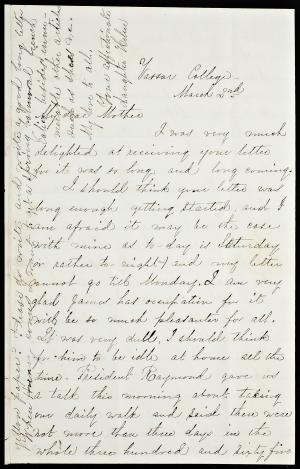 Vassar College.
March 2nd
My dear Mother
I was very much
delighted at receiving your letter
for it was so long and long coming.
I should think your letter was
long enough getting started, and I
am afraid it may be the case
with mine as to-day is Saturday
(or rather to-night) and my letter
cannot go till Monday. I am very
glad James has occupation for it
will be so much pleasanter for all.
It was very dull, I should think
for him to be idle at home all the
time. President Raymond gave us
a talk this morning about taking
our daily walk and said there were
not more than three days in the
whole three hundred and sixty five
paper? Please do write and write a good long letter
the other article
My love to all.
Your affectionate
daughter